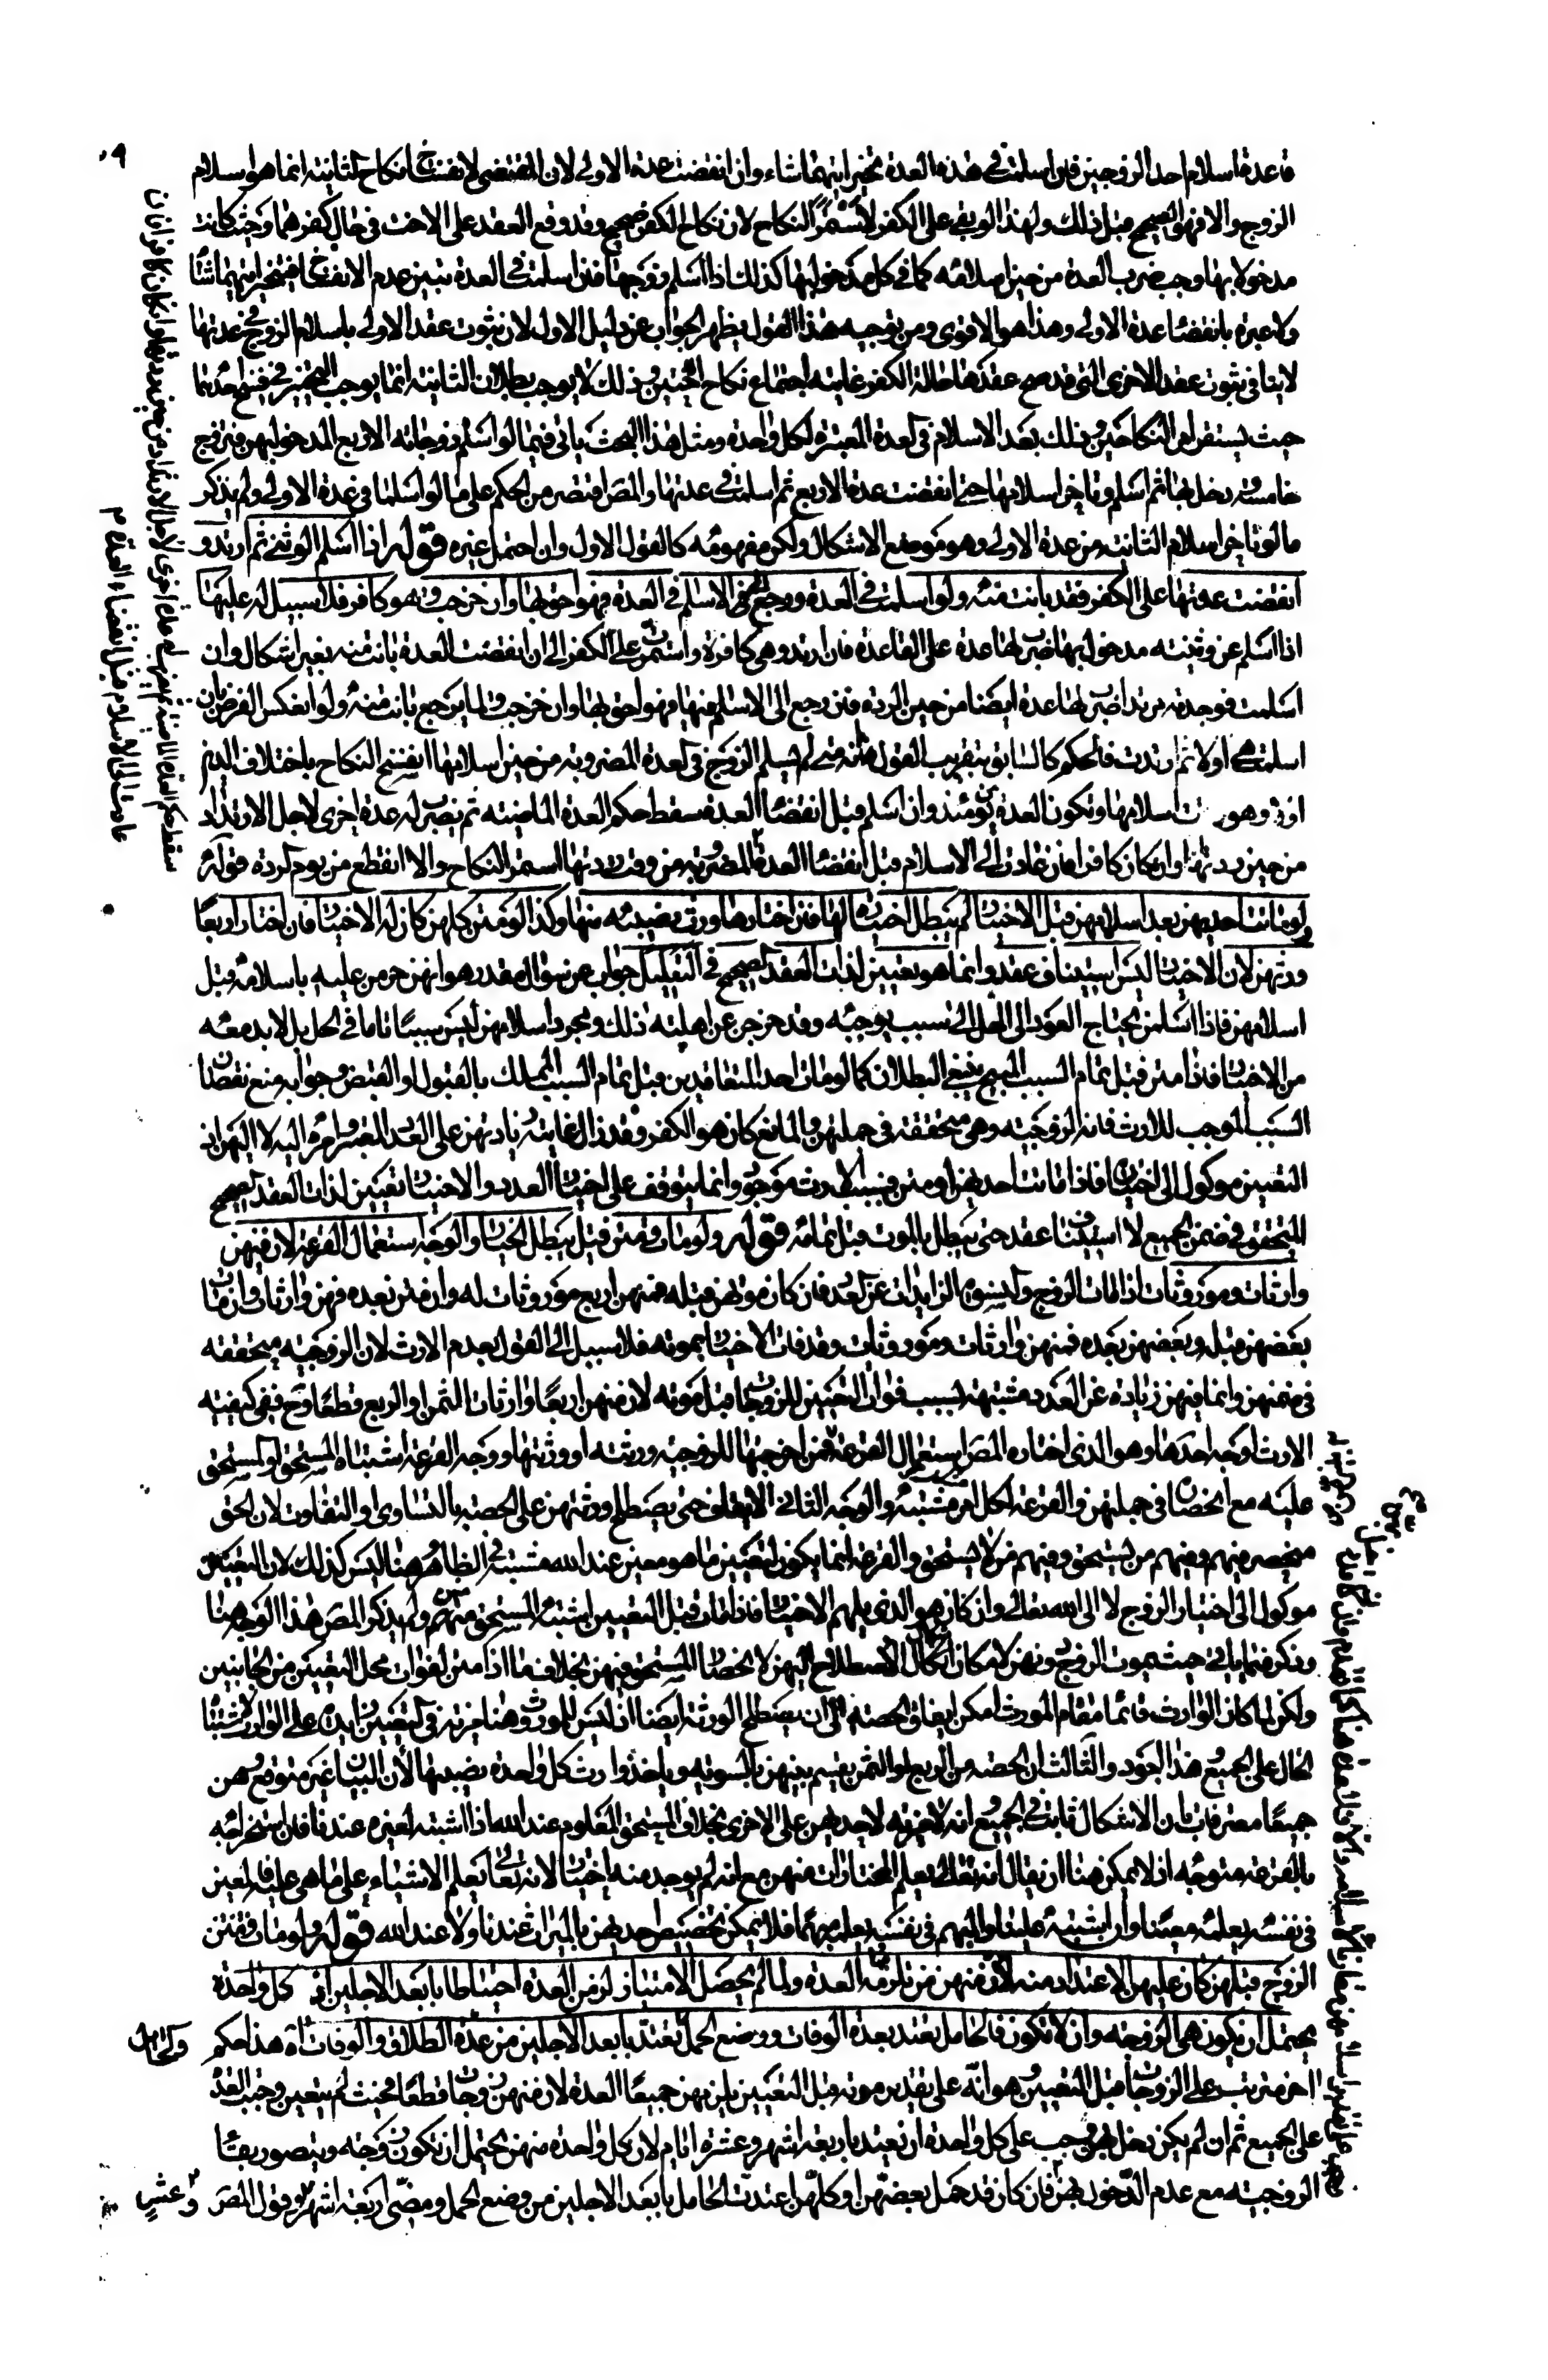 قاعدة اسلام احد الزوجين فان اسلمت في هذه العدة تخير ايتهما شاء وان انقضت عدة الاولى لان المقتضى لانفساخ نكاح الثانية انما هو اسلام
الزوج والا فهو الصحيح قبل ذلك ولهذا لو بقي على الكفر لاستمر النكاح لان نكاح الكفر صحيح وقد وقع العقد على الاخت في حال كفرهما وحيث كانت
مدخولا بها وجب ضرب العدة من حين اسلامه كما في كل مدخول بها كذلك اذا اسلم زوجها فان اسلمت في العدة تبين عدم الانفساخ فيتخير ايتهما شاء
ولا عبرة بانقضاء عدة الاولى وهذا هو الاقوى ومن توجيه هذا القول يظهر الجواب عن دليل الاول لان ثبوت عقد الاولى باسلام الزوج في عدتها
لا ينافي ثبوت عقد الاخرى التي قد صح عقدها حالة الكفر غايته اجتماع نكاح اختين وذلك لا يوجب بطلان الثانية انما يوجب التخيير في فسخ احدهما
حيث يستقر امر النكاحين وذلك بعد الاسلام في العدة المعتبرة لكل واحدة ومثل هذا البحث ياتي فيما لو اسلم زوجاته الاربع المدخول بهن فتزوج
خامسة ودخل بها ثم اسلم وتاخر اسلامها حتى انقضت عدة الاربع ثم اسلمت في عدتها والمص اقتصر من الحكم على ما لو اسلما في عدة الاولى ولم يذكر
ما لو تاخر اسلام الثانية من عدة الاولى وهو موضع الاشكال ولكن مفهومه كالقول الاول وان احتمل غيره قوله اذا اسلم الوثني ثم ارتد و
انقضت عدتها على الكفر فقد بانت منه ولو اسلمت في العدة ورجع الى الاسلام في العدة فهو احق بها وان خرجت وهو كافر فلا سبيل له عليها
اذا اسلم عن وثنية مدخول بها ضرب لها عدة على القاعدة فان ارتد وهي كافرة واستمرت على الكفر الى ان انقضت العدة بانت منه بغير اشكال وان
اسلمت فوجدته مرتدا ضرب لها عدة ايضا من حين الردة فان رجع الى الاسلام فيها فهو احق بها وان خرجت ولما يرجع بانت منه ولو انعكس الفرض بان
اسلمت هي اولا ثم ارتدت فالحكم كالسابق بتقريب القول فانه متى لم يسلم الزوج في العدة المضروبة من حين اسلامها انفسخ النكاح باختلاف الدين
اسلامها وتكون العدة يومئذ وان اسلم قبل انقضاء العدة سقط حكم العدة الماضية ثم يضرب له عدة اخرى لاجل الارتداد
من حين ردتها وان كان كافرا فان عادت الى الاسلام قبل انقضاء العدة المضروبة من وقت ردتها استمر النكاح والا انقطع من يوم الردة قوله
ولو ماتت احديهن بعد اسلامهن قبل الاختيار لم يبطل اختياره لها فان اختارها ورث نصيبه منها وكذا لو متن كلهن كان له الاختيار فان اختار اربعا
ورثهن لان الاختيار ليس استيناف عقد وانما هو تعيين لذات العقد الصحيح في التعليل جواب عن سؤال مقدر هو انهن حرمن عليه باسلامه قبل
اسلامهن فاذا اسلمن يحتاج العود الى الحل الى سبب يوجبه وقد خرجن عن اهلية ذلك ومجرد اسلامهن ليس سببا تاما في الحل بل لا بد معه
من الاختيار فاذا متن قبل تمام السبب المبيح ينبغي البطلان كما لو مات احد المتعاقدين قبل تمام السبب المملك بالقبول او القبض وجوابه منع نقصان
السبب الموجب للارث فانه الزوجية وهي متحققة في جملتهن والمانع كان هو الكفر وقد زال غايته زيادتهن على العدد المعتبر وامره اليه لا اليهن اذ
التعيين موكول الى اختياره فاذا ماتت احديهن او متن فسبب الارث موجود وانما يتوقف على اختيار العدد والاختيار تعيين لذات العقد الصحيح
المتحقق في ضمن الجميع لا استيناف عقد حتى يبطل بالموت قبل تمامه قوله ولو مات ومتن قبل يبطل الخيار والوجه استعمال القرعة لان فيهن
وارثات وموروثات اذا مات الزوج والنسوة الزايدات عن العدد فان كان موتهن قبله فمنهن اربع موروثات له وان متن بعده فهن وارثات وان مات
بعضهن قبله وبعضهن بعده فمنهن وارثات وموروثات وقد فات الاختيار بموته فلا سبيل الى القول بعدم الارث لان الزوجية متحققة
في ضمنهن وانما فيهن زيادة عن العدد مشتبهة بسبب فوات التعيين للزوجات قبل موته لان منهن اربعا وارثات الثمن او الربع قطعا وح ففي كيفية
الارث اوجه احدها وهو الذي اختاره المص استعمال القرعة فمن اخرجتها للزوجية ورثته او ورثتها ووجه القرعة اشتباه المستحق او المستحق
عليه مع انحصاره في جملتهن والقرعة لكل امر مشتبه والوجه الثاني الايقاف حتى يصطلح ورثتهن على الحصة بالتساوي او التفاوت لان الحق
منحصر فيهم وفيهم من يستحق وفيهم من لا يستحق والقرعة انما يكون لتعيين ما هو معين عند الله مشتبه في الظاهر وهنا ليس كذلك لان التعيين
موكول الى اختيار الزوج لا الى الله تعالى وان كان هو الذي يلهم الاختيار فاذا مات قبل التعيين اشتبه المستحق منهن ولم يذكر المص هذا الوجه هنا
وذكره فيما ياتي حيث يموت الزوج دونهن لامكان احالة الاصطلاح اليهن لانحصار المستحق فيهن بخلاف ما اذا متن لفوات محل التعيين من الجانبين
ولكن لما كان الوارث قائما مقام المورث امكن ايقاف الحصة الى ان يصطلح الورثة ايضا اذ ليس للمورث هنا مزية في التعيين زايدة على الوارث لاشتباه
الحال على الجميع وهذا اجود والثالث ان الحصة من الربع او الثمن يقسم بينهن بالسوية وياخذ وارث كل واحدة نصيبها لان البيان غير متوقع وهن
جميعا معترفات بان الاشكال ثابت في الجميع انه لا مزية لاحديهن على الاخرى بخلاف المستحق المعلوم عند الله اذا اشتبه لغيره عندنا فان استخراجه
بالقرعة متوجه اذ لا يمكن هنا ان يقال انه تعالى يعلم المختارات منهن مع انه لم يوجد منه اختيار لانه تعالى يعلم الاشياء على ما هي عليه فالمعين
في نفسه يعلمه معينا وان اشتبه علينا والمبهم في نفسه يعلمه مبهما فلا يمكن تخصيص احديهن بالميراث عندنا ولا عند الله قوله ولو مات
الزوج قبلهن كان عليهن الاعتداد منه لان منهن من تلزمه العدة ولما لم يحصل الامتياز لزمن العدة احتياطا بابعد الاجلين اذ كل واحدة
يحتمل ان يكون هي الزوجة وان لا تكون فالحامل تعتد بعدة الوفاة ووضع الحمل تعتد بابعد الاجلين من عدة الطلاق والوفات اه هذا حكم والحايل
اخر مترتب على الزوجات قبل التعيين وهو انه على تقدير موته قبل التعيين يلزمهن جميعا العدة لان منهن زوجات قطعا فحيث لم يتعين وجبت العدة
على الجميع ثم ان لم يكن دخل بهن وجب على كل واحدة ان تعتد باربعة اشهر وعشرة ايام لان كل واحدة منهن يحتمل ان تكون زوجة ويتصور بقاء
الزوجية مع عدم الدخول بهن فان كان قد حبل بعضهن او كلهن اعتدت الحامل بابعد الاجلين من وضع الحمل ومضي اربعة اشهر وقول المص وعشر